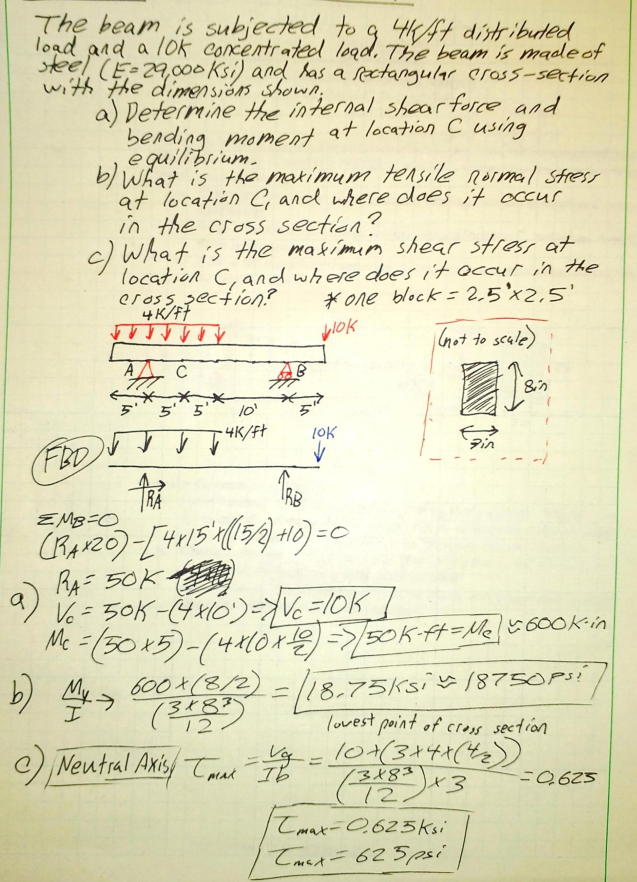 The beam is subjected to a 4k/ft distributed
load and a 10k concentrated load. The beam is made of
steel (E=29,000 Ksi) and has a rectangular cross-section
with the dimensions shown.
a) Determine the internal shear force and
bending moment at location C using
equilibrium.
b) What is the maximum tensile normal stress
at location C, and where does it occur
in the cross section?
c) What is the maximum shear stress at
location C, and where does it occur in the
cross section? * one block = 2.5'x2.5'
4K/ft
10K
(not to scale)
A C B
8in
5' 5' 5' 10' 5'
3in
FBD
4K/ft
10K
RA RB
ΣMB=0
(RAx20)-[4x15'x((15/2)+10)=0
RA=50K
a) Vc=50K-(4x10')=>Vc=10K
Mc=(50x5)-(4x10x10/2)=>50K-ft=Mc≈600K-in
b) My/I → 600x(8/2)/(3x8³/12) = 18.75Ksi≈18750psi
lowest point of cross section
c) Neutral Axis τmax=VQ/Ib=10x(3x4x(4/2))/(3x8³/12)x3=0.625
τmax=0.625Ksi
τmax=625psi